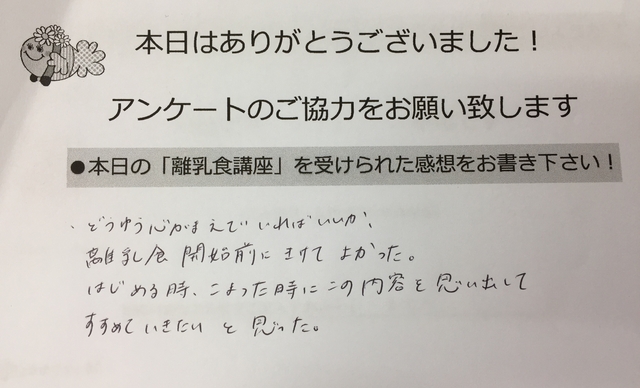 本日はありがとうございました！
アンケートのご協力をお願い致します
●本日の「離乳食講座」を受けられた感想をお書き下さい！
・どうゆう心がまえでいればいいか、
離乳食 開始前にきけてよかった。
はじめる時、こまった時にこの内容を思い出して
すすめていきたいと思った。